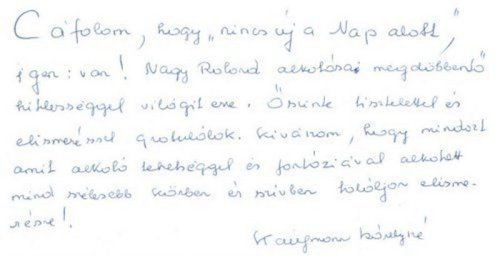 Cáfolom, hogy „nincs új a Nap alatt",
igen: van! Nagy Roland alkotásai megdöbbentő
hitelességgel világít erre. Őszinte tisztelettel és
elismeréssel gratulálok. Kívánom, hogy mindazt
amit alkotó tehetséggel és fantáziával alkotott
mind szélesebb körben és szívben találjon elisme-
résre!
Károlyné